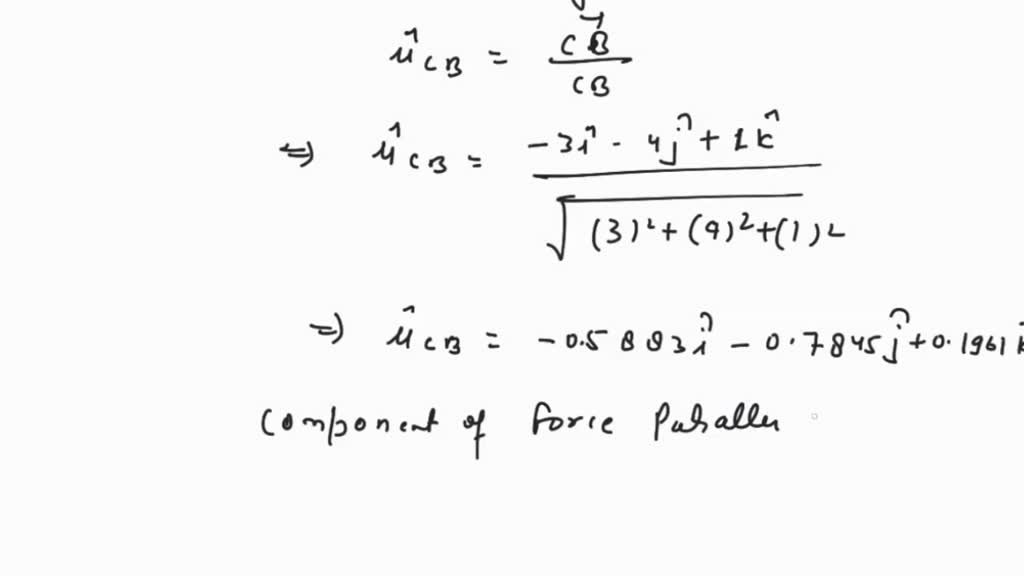 û_CB = CB⃗ / CB
⇒ û_CB = -3î - 4ĵ + 1k̂ / √(3)² + (4)² + (1)²
⇒ û_CB = -0.5883î - 0.7845ĵ + 0.1961k̂
Component of force Parallel